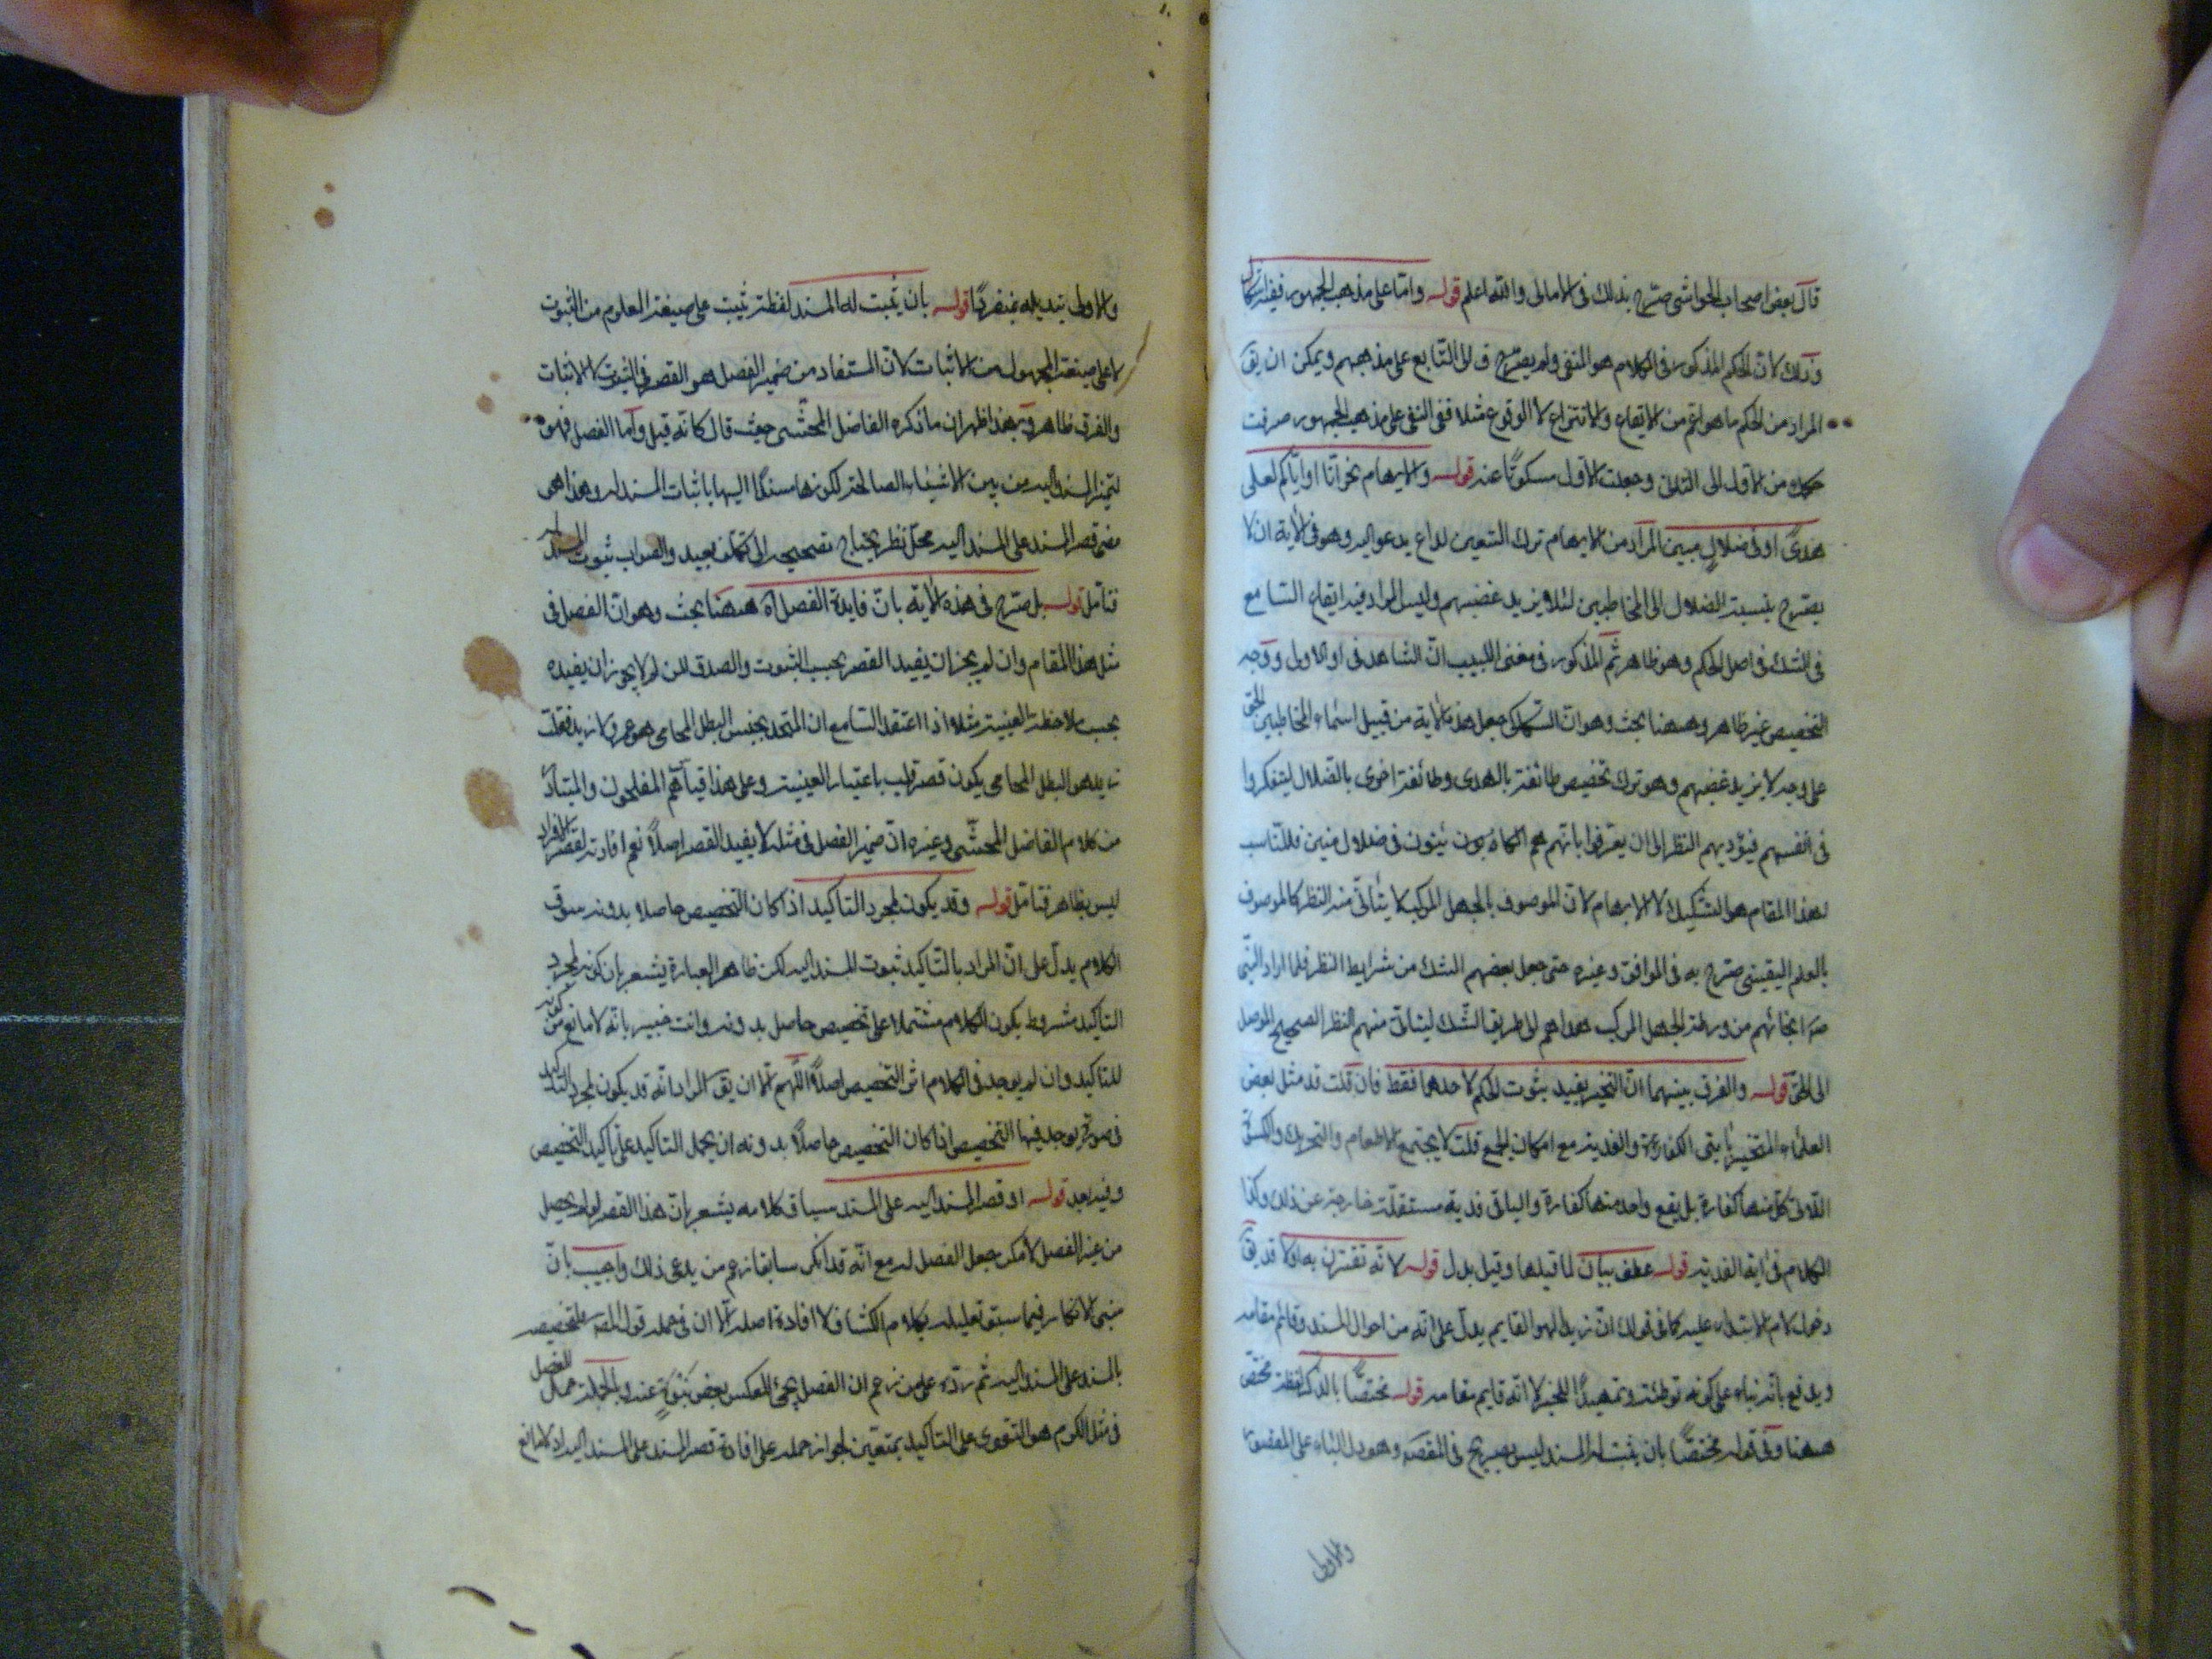 قال بعض اصحاب الحواشى صرّح بذلك فى الامالى والله اعلم قوله وامّا على مذهب الجمهور ففيه اشكال
وذلك لانّ الحكم المذكور فى الكلام هو المنفى ولم يصرّح على مذهبهم ويمكن ان يق
المراد من الحكم ما هو اعمّ من الايقاع والانتزاع لا الوقوع مثلا ففى النفى على مذهب الجمهور صرفت
حكمه من الاوّل الى الثانى وجعلت الاوّل مسكوتًا عنه قوله والابهام نحو انّا او ايّاكم لعلى
هدىً او فى ضلالٍ مبين المراد من الابهام ترك التعيين لداعٍ يدعو اليه وهو فى الآية ان لا
يصرّح بنسبة الضلال الى المخاطبين لئلا يزيد غضبهم وليس المراد فيه ايقاع السامع
فى الشك فى اصل الحكم وهو ظاهر ثم المذكور فى مغنى اللبيب انّ الشاهد فى او الاولى ووجه
التخصيص غير ظاهر وههنا بحث وهو انّ السكاكى جعل هذه الآية من قبيل اسماع المخاطبين الحق
على وجه لا يزيد غضبهم وهو ترك تخصيص طائفة بالهدى وطائفة اخرى بالضلال ليتفكروا
فى انفسهم فيؤديهم النظر الى ان يعترفوا بانّهم هم الكائنون فى ضلال مبين فالمناسب
لهذا المقام هو التشكيك لا الابهام لانّ الموصوف بالجهل المركب لا يتأتى منه النظر كالموصوف
بالعلم اليقينى صرّح به فى المواقف وغيره حتى جعل بعضهم الشك من شرايط النظر فلما اراد النبى
صه انجائهم من ورطة الجهل المركب هداهم الى طريق الشك ليتأتى منهم النظر الصحيح الموصل
الى الحق قوله والفرق بينهما انّ التخيير يفيد ثبوت الحكم لاحدهما فقط فان قلت قد مثل بعض
العلماء التخيير بآيتى الكفارة والفدية مع امكان الجمع قلت لا يجتمع الاطعام والتحرير والكسوة
اللاتى كلّ منها كفارة بل يقع واحد منها كفارة والباقى قربة مستقلّة خارجة عن ذلك وكذا
الكلام فى آية الفدية قوله عطف بيان لما قبلها وقيل بدل قوله لانّه تقترن به اولا قد يق
دخول لام الابتداء عليه كما فى قولك انّ زيدا لهو القايم يدلّ على انّه من احوال المسند وقائم مقامه
ويدفع بانّه بناء على كونه توطئة وتمهيدًا للخبر لا انّه قايم مقامه قوله مختصًّا بالذكر لفظة مختص
ههنا وفى قوله مختصًّا بان يثبت له المسند ليس بصريح فى المقصه وهو دخول الباء على المقصور
والاولى
والاولى تبديله بمنفردًا قوله بان يثبت له المسند لفظة يثبت على صيغة المعلوم من الثبوت
لا على صيغة المجهول من الاثبات لانّ المستفاد من ضمير الفصل هو القصر فى الثبوت لا الاثبات
والفرق ظاهر وبهذا ظهر ان ما ذكره الفاضل المحشّى حيث قال كانّه قيل وامّا الفصل فهو
لتميز المسند اليه من بين الاشياء الصالحة لكونها مسندًا اليها باثبات المسند له وهذا هو
معنى قصر المسند على المسند اليه محلّ نظر يحتاج تصحيحه الى تكلّف بعيد والصواب ثبوت المسند له
فتأمّل قوله بل صرّح فى هذه الآية بانّ فايدة الفصل آه ههنا بحث وهو انّ الفصل فى
مثل هذا المقام وان لم يجز ان يفيد القصر بحسب الثبوت والصدق لكن لم لا يجوز ان يفيده
بحسب ملاحظة العينية مثلا اذا اعتقد السامع ان المتحد بجنس البطل المحامى هو عمرو لا زيد فقلت
زيد هو البطل المحامى يكون قصر قلب باعتبار العينية وعلى هذا قياس هم المفلحون والمتبادر
من كلام الفاضل المحشّى وغيره انّ ضمير الفصل فى مثله لا يفيد القصر اصلاً نعم افادته لقصر الافراد
ليس بظاهر فتأمّل قوله وقد يكون لمجرد التاكيد اذا كان التخصيص حاصلا بدونه سوق
الكلام يدلّ على انّ المراد بالتاكيد ثبوت المسند اليه لكن ظاهر العبارة يشعر بان كونه لمجرد
التاكيد مشروط بكون الكلام مشتملا على تخصيص حاصل بدونه وانت خبير بانّه لا مانع من كونه
للتاكيد وان لم يوجد فى الكلام اثر التخصيص اصلاً اللّهم الا ان يق المراد انّه قد يكون لمجرد التاكيد
فى صورة يوجد فيها التخصيص اذا كان التخصيص حاصلاً بدونه ان يحمل التاكيد على تاكيد التخصيص
وفيه بعد قوله او قصر المسند اليه على المسند سياق كلامه يشعر بانّ هذا القصر لو لم يحصل
من غير الفصل لامكن جعل الفصل له مع انّه قد انكر سابقا زعم من يدعى ذلك واجيب بانّ
مبنى الانكار فيما سبق تعليله بكلام الكشاف لا افادة اصله الّا ان فى حمله قول المصه فلتخصيصه
بالمسند على المسند اليه ثم ردّه على من زعم ان الفصل يجئ للعكس بعض عنه وبالجملة حمل الفصل
فى مثل الكرم هو التقوى على التاكيد بمتعيّن لجواز حمله على افادة قصر المسند على المسند اليه اذ لا مانع